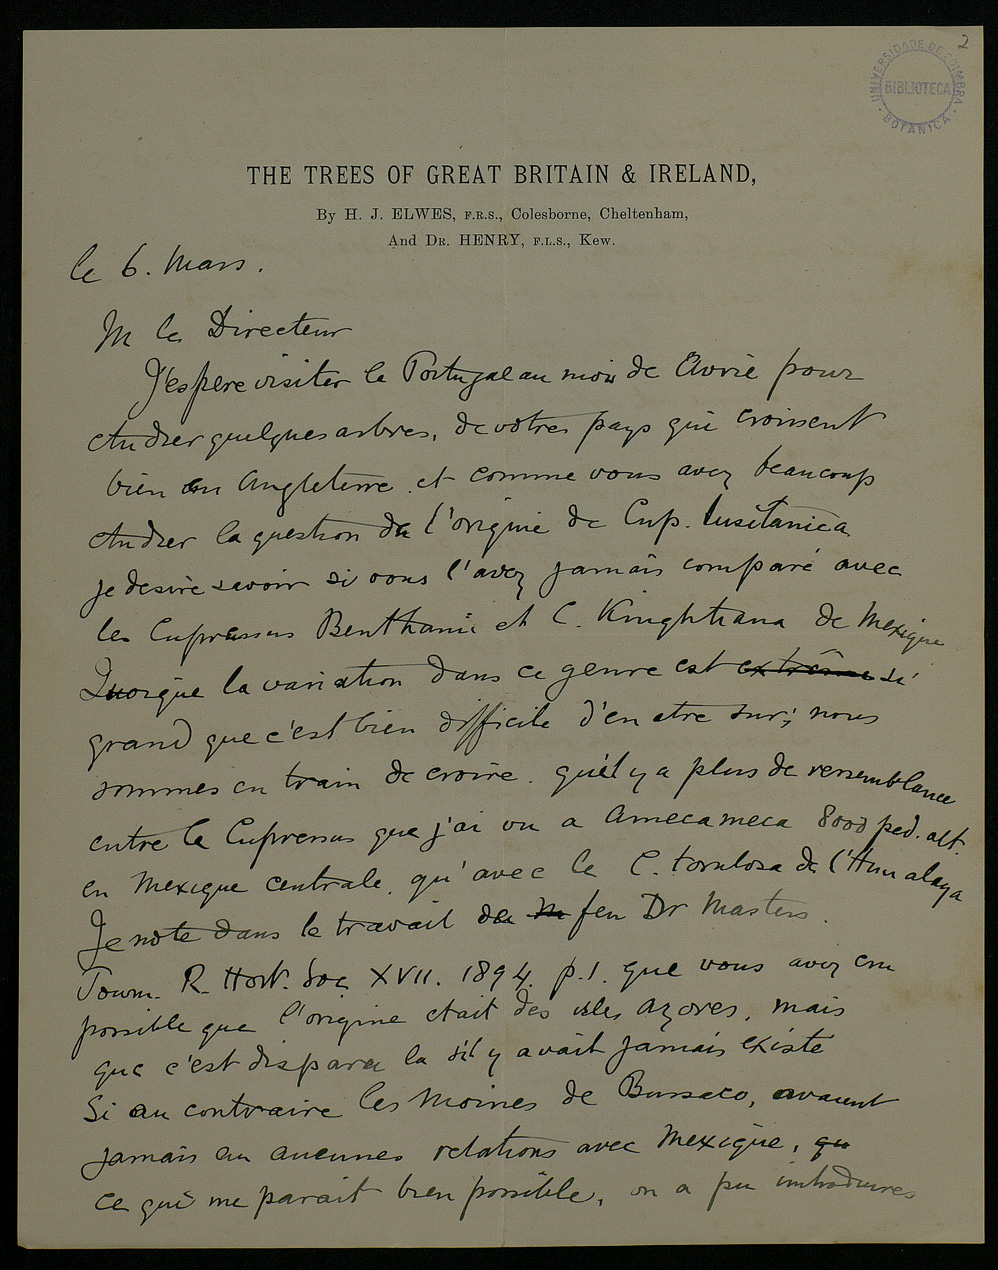 2
UNIVERSIDADE DE COIMBRA
BIBLIOTECA
BOTANICA
THE TREES OF GREAT BRITAIN & IRELAND,
By H. J. ELWES, F.R.S., Colesborne, Cheltenham,
And DR. HENRY, F.L.S., Kew.
le 6. Mars.
M le Directeur
J'espere visiter le Portugal au mois de Avril pour
etudier quelques arbres, de votres pays qui croissent
bien en Angleterre et comme vous avez beaucoup
etudier la question de l'origine de Cup. lusitanica
je desire savoir si vous l'avez jamais comparé avec
les Cupressus Benthami et C. Knightiana de Mexique
Quoique la variation dans ce genre est extrême si
grand que c'est bien difficile d'en etre sur; nous
sommes en train de croire qu'il y a plus de ressemblance
entre le Cupressus que j'ai vu a Amecameca 8000 ped. alt.
en Mexique centrale. qu'avec le C. torulosa de l'Himalaya
Je note dans le travail de M feu Dr Masters.
Journ. R. Hort. Soc XVII. 1894. p.1. que vous avez cru
possible que l'origine etait des isles Azores, mais
que c'est disparu la s'il y avait jamais existé
Si au contraire les Moines de Bussaco, avaient
jamais eu aucunes relations avec Mexique, qu
ce qui me parait bien possible, on a pu introduires